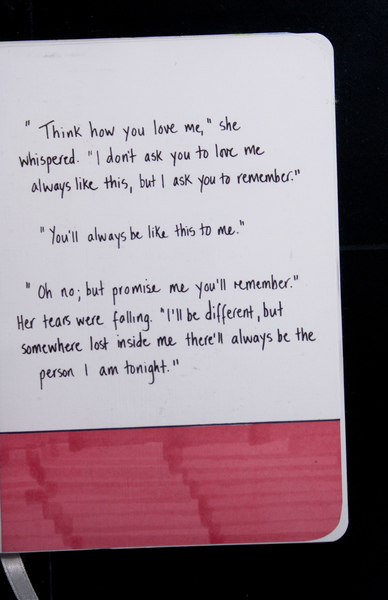 " Think how you love me," she
whispered. "I don't ask you to love me
always like this, but I ask you to remember."
"You'll always be like this to me."
" Oh no; but promise me you'll remember."
Her tears were falling. "I'll be different, but
somewhere lost inside me there'll always be the
person I am tonight."